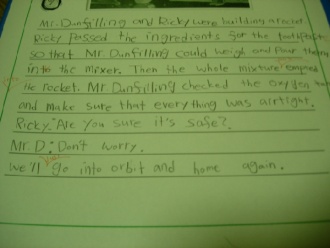 Mr. Dunfilling and Ricky were building a rocket
Ricky passed the ingredients for the
so that Mr. Dunfilling could weigh and Pour them
into the mixer. Then the whole mixture
the rocket. Mr. Dunfilling checked the oxygen
and make sure that everything was airtight.
Ricky: Are you sure it's safe?
Mr. D: Don't worry.
We'll go into orbit and home again.